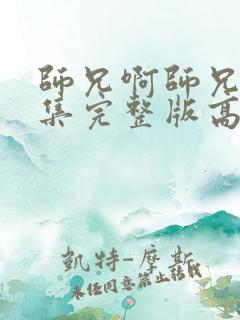 師兄啊師兄
集完整版高
凱特-摩斯
未经同意禁止转载